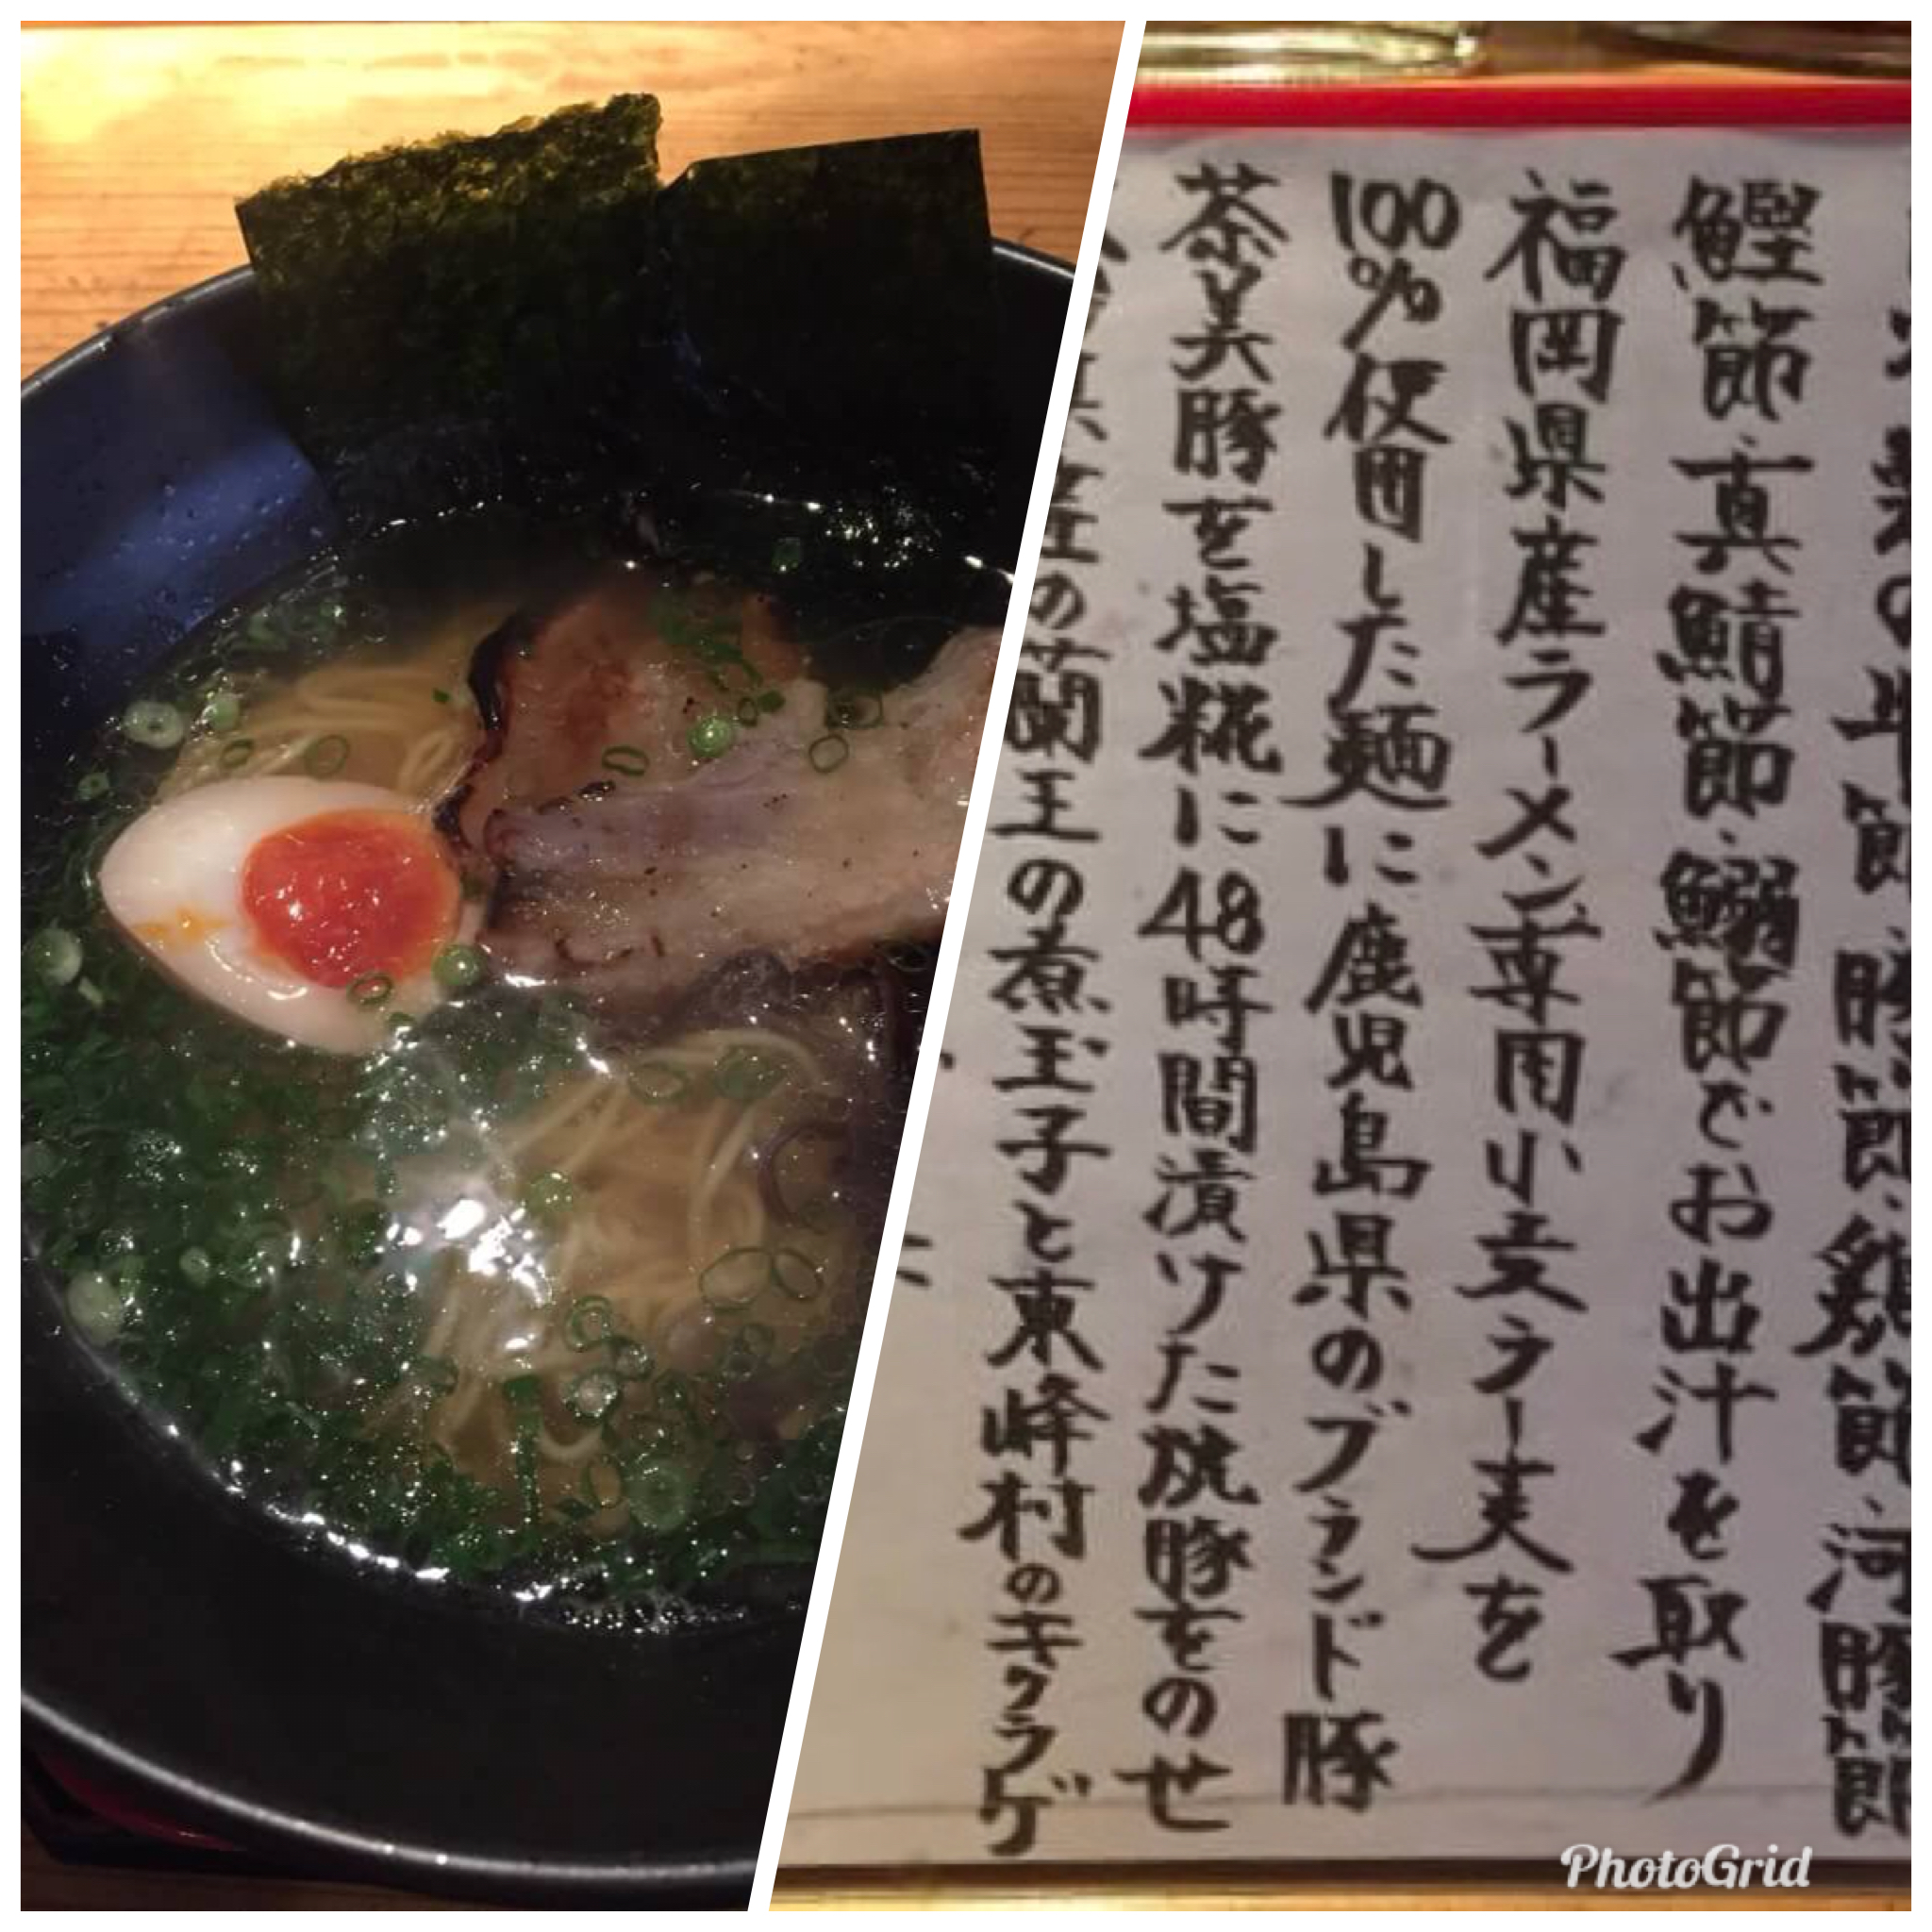 の牛節・豚節・鶏節・河豚節
鰹節・真鯖節・鰯節でお出汁を取り
福岡県産ラーメン専用小麦ラー麦を
100%使用した麺に鹿児島県のブランド豚
茶美豚を塩糀に48時間漬けた焼豚をのせ
産の蘭王の煮玉子と東峰村のキクラゲ
PhotoGrid